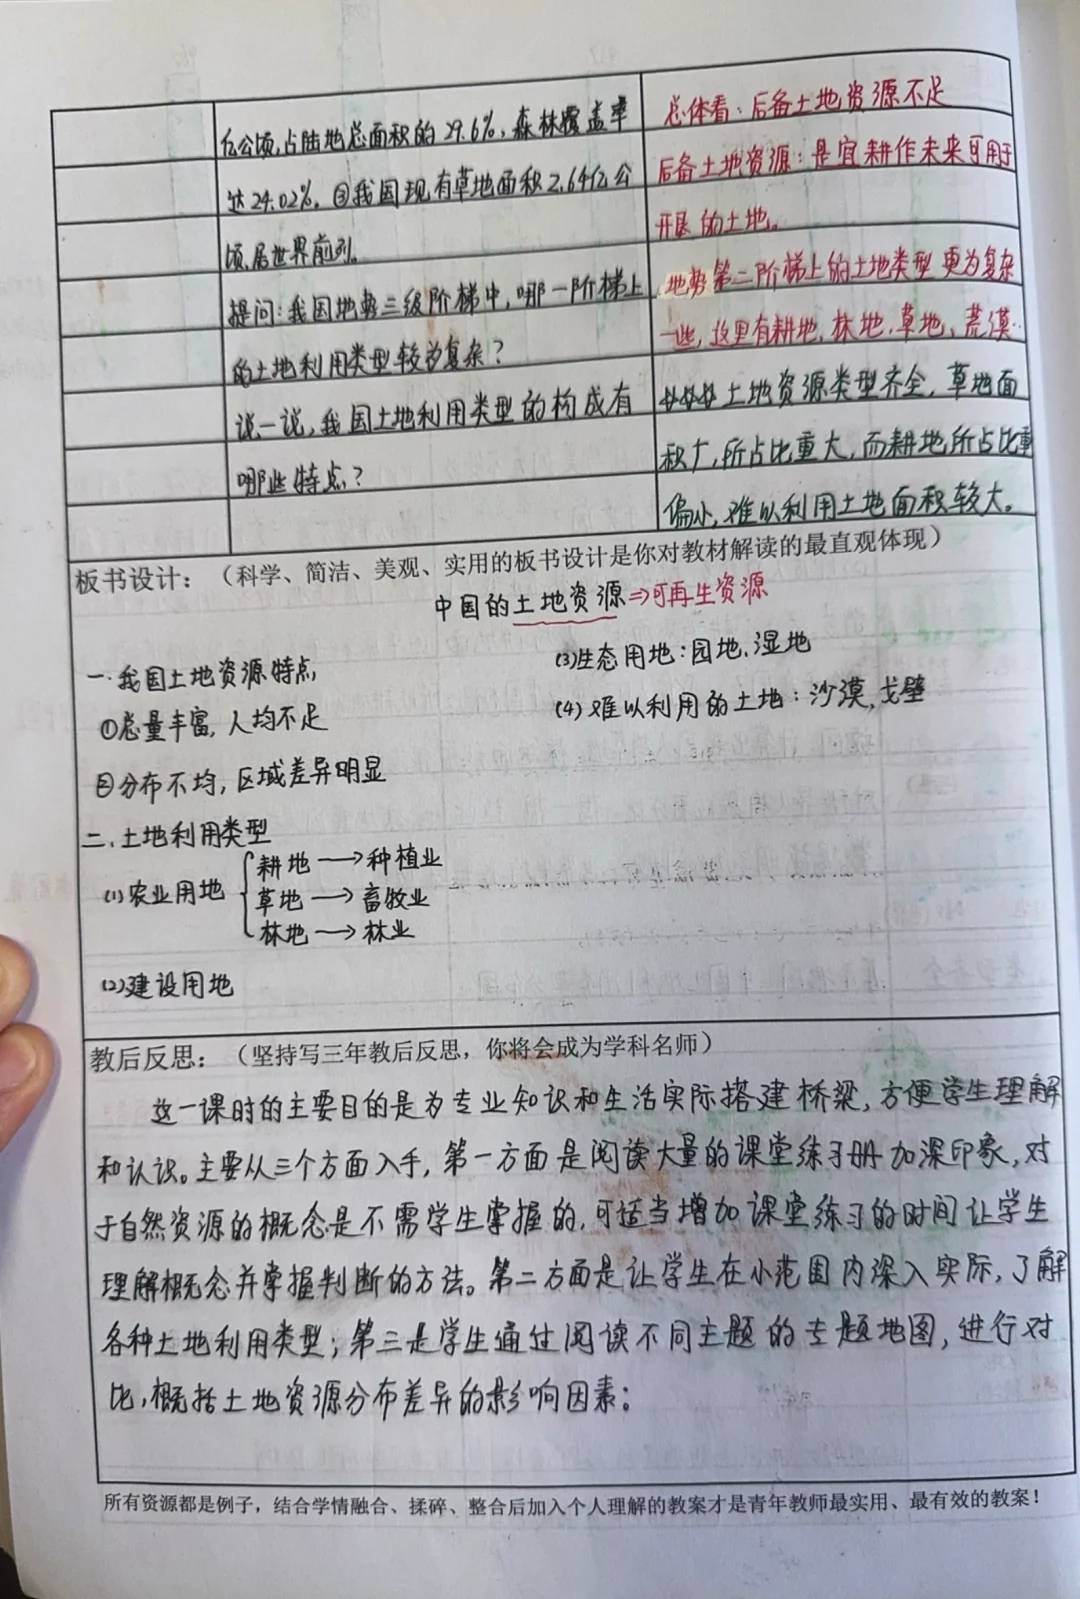 亿公顷,占陆地总面积的29.6%,森林覆盖率
达24.02%。③我国现有草地面积2.64亿公
顷,居世界前列。
提问:我国地势三级阶梯中,哪一阶梯上
的土地利用类型较为复杂?
说一说,我国土地利用类型的构成有
哪些特点?
总体看:后备土地资源不足
后备土地资源:是宜耕作未来可用于
开垦的土地。
地势第二阶梯上的土地类型更为复杂
一些,这里有耕地,林地,草地,荒漠…
土地资源类型齐全,草地面
积广,所占比重大,而耕地所占比重
偏小,难以利用土地面积较大。
板书设计:(科学、简洁、美观、实用的板书设计是你对教材解读的最直观体现)
中国的土地资源⇒可再生资源
一.我国土地资源特点
①总量丰富,人均不足
②分布不均,区域差异明显
二.土地利用类型
(1)农业用地
耕地→种植业
草地→畜牧业
林地→林业
(2)建设用地
(3)生态用地:园地,湿地
(4)难以利用的土地:沙漠,戈壁
教后反思:(坚持写三年教后反思,你将会成为学科名师)
这一课时的主要目的是为专业知识和生活实际搭建桥梁,方便学生理解
和认识。主要从三个方面入手,第一方面是阅读大量的课堂练习册加深印象,对
于自然资源的概念是不需学生掌握的,可适当增加课堂练习的时间让学生
理解概念并掌握判断的方法。第二方面是让学生在小范围内深入实际,了解
各种土地利用类型;第三是学生通过阅读不同主题的专题地图,进行对
比,概括土地资源分布差异的影响因素;
所有资源都是例子,结合学情融合、揉碎、整合后加入个人理解的教案才是青年教师最实用、最有效的教案!